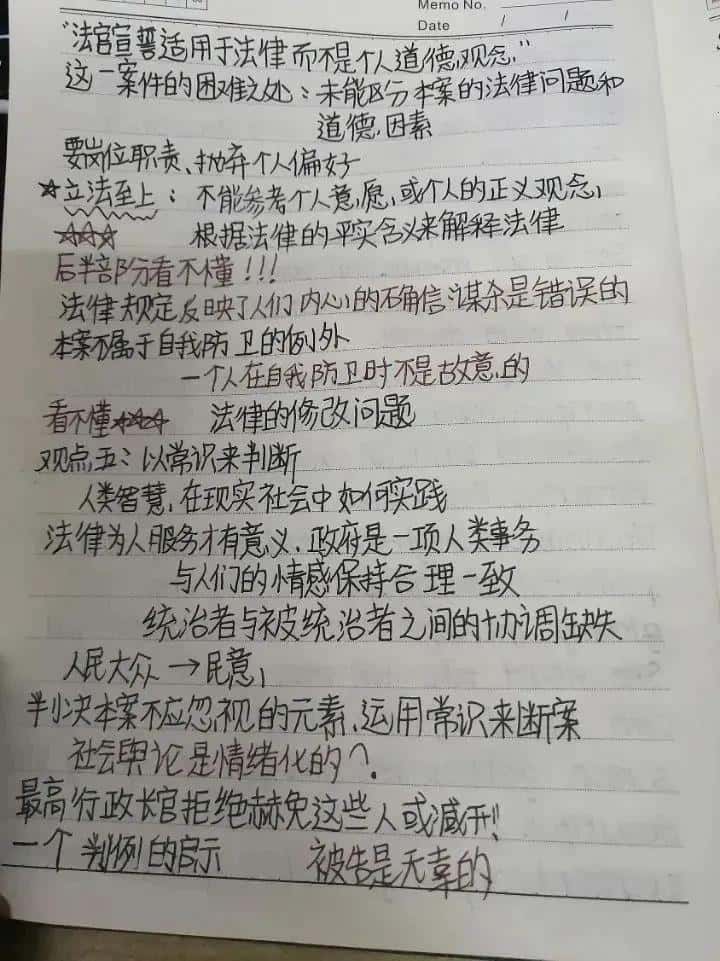 Memo No.
Date / /
"法官宣誓适用于法律而不是个人道德观念,"
这一案件的困难之处:未能区分本案的法律问题和
道德因素
要岗位职责、抛弃个人偏好
☆立法至上: 不能参考个人意愿,或个人的正义观念,
☆☆☆ 根据法律的平实含义来解释法律
后半部分看不懂!!!
法律规定反映了人们内心的确信:谋杀是错误的
本案不属于自我防卫的例外
一个人在自我防卫时不是故意的
看不懂☆☆☆ 法律的修改问题
观点五:以常识来判断
人类智慧,在现实社会中如何实践
法律为人服务才有意义.政府是一项人类事务
与人们的情感保持合理一致
统治者与被统治者之间的协调缺失
人民大众→民意,
判决本案不应忽视的元素,运用常识来断案
社会舆论是情绪化的?
最高行政长官拒绝赦免这些人或减刑!!
一个判例的启示 被告是无辜的